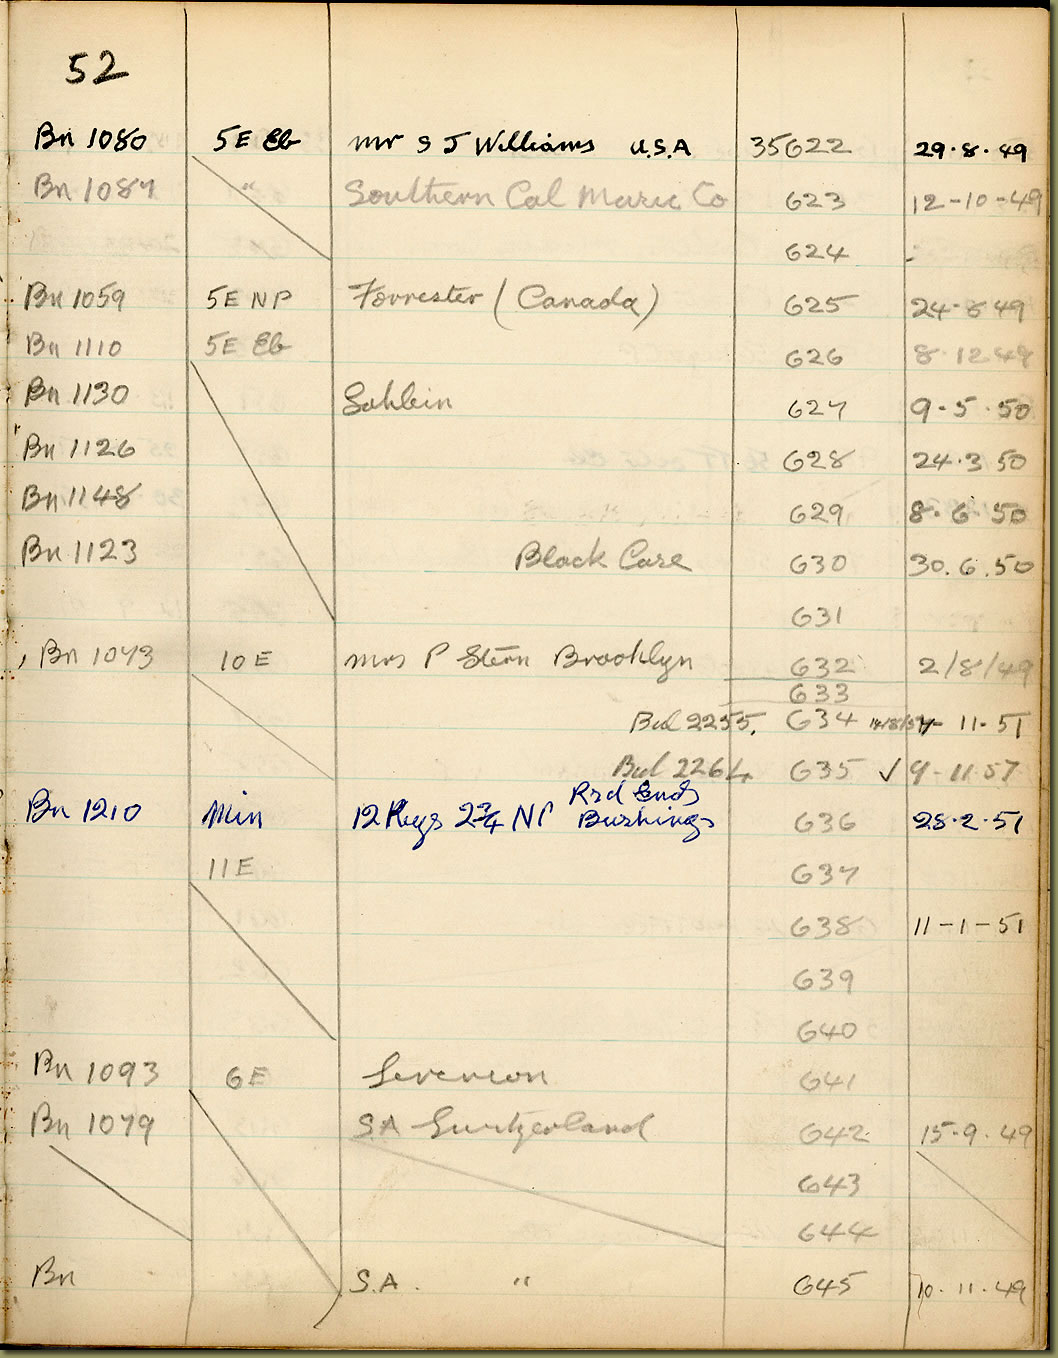 52
Bn 1080 5E Eb Mr S J Williams U.S.A 35622 29.8.49
Bn 1087 " Southern Cal Music Co 623 12-10-49
624
Bn 1059 5E NP Forrester (Canada) 625 24-8-49
Bn 1110 5E Eb 626 8.12.49
Bn 1130 627 9-5.50
Bn 1126 628 24.3.50
Bn 1148 629 8.6.50
Bn 1123 Black Case 630 30.6.50
631
Bn 1073 10E Mrs P Stern Brooklyn 632 2/8/49
633
Bnl 2255. 634 11-51
Bnl 2264 635 ✓ 9-11 57
Bn 1210 Min 12 Keys 2 3/4 NP Rsd Ends
Bushings 636 28.2.51
11E 637
638 11-1-51
639
640
Bn 1093 6E Levenson 641
Bn 1079 SA 642 15-9.49
643
644
Bn S.A. " 645 10.11.49